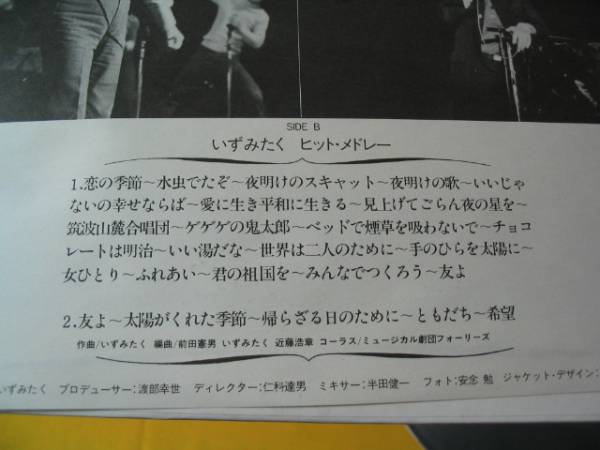 SIDE B
いずみたく ヒット・メドレー
1.恋の季節〜水虫でたぞ〜夜明けのスキャット〜夜明けの歌〜いいじゃ
ないの幸せならば〜愛に生き平和に生きる〜見上げてごらん夜の星を〜
筑波山麓合唱団〜ゲゲゲの鬼太郎〜ベッドで煙草を吸わないで〜チョコ
レートは明治〜いい湯だな〜世界は二人のために〜手のひらを太陽に〜
女ひとり〜ふれあい〜君の祖国を〜みんなでつくろう〜友よ
2.友よ〜太陽がくれた季節〜帰らざる日のために〜ともだち〜希望
作曲/いずみたく 編曲/前田憲男 いずみたく 近藤浩章 コーラス/ミュージカル劇団フォーリーズ
いずみたく プロデューサー:渡部幸世 ディレクター:仁科達男 ミキサー:半田健一 フォト:安念 勉 ジャケット・デザイン: